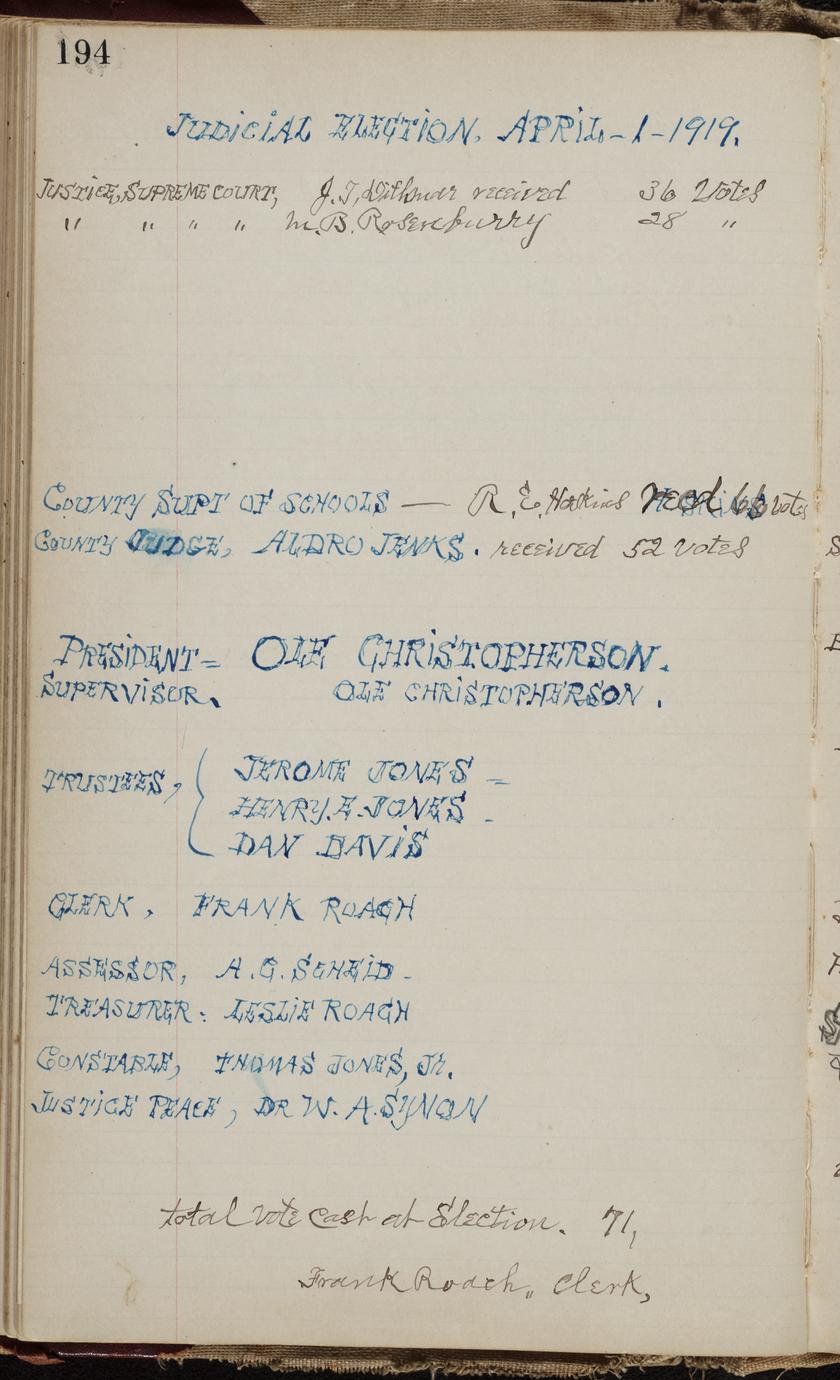 194
JUDICIAL ELECTION. APRIL-1-1919.
JUSTICE, SUPREME COURT, J. J, Withmar received 36 Votes
" " " " M. B. Rosenburry 28 "
COUNTY SUPT OF SCHOOLS — R. E. Hoskins recd 66 votes
COUNTY JUDGE, ALDRO JENKS. received 52 votes
PRESIDENT= OLE CHRISTOPHERSON.
SUPERVISOR. OLE CHRISTOPHERSON.
TRUSTEES, { JEROME JONES -
HENRY.E.JONES -
DAN DAVIS
CLERK, FRANK ROACH
ASSESSOR, A.G. SCHEID-
TREASURER: LESLIE ROACH
CONSTABLE, THOMAS JONES, Jr.
JUSTICE PEACE, DR W. A. SYNON
total Vote Cast at Election. 71,
Frank Roach,, Clerk,